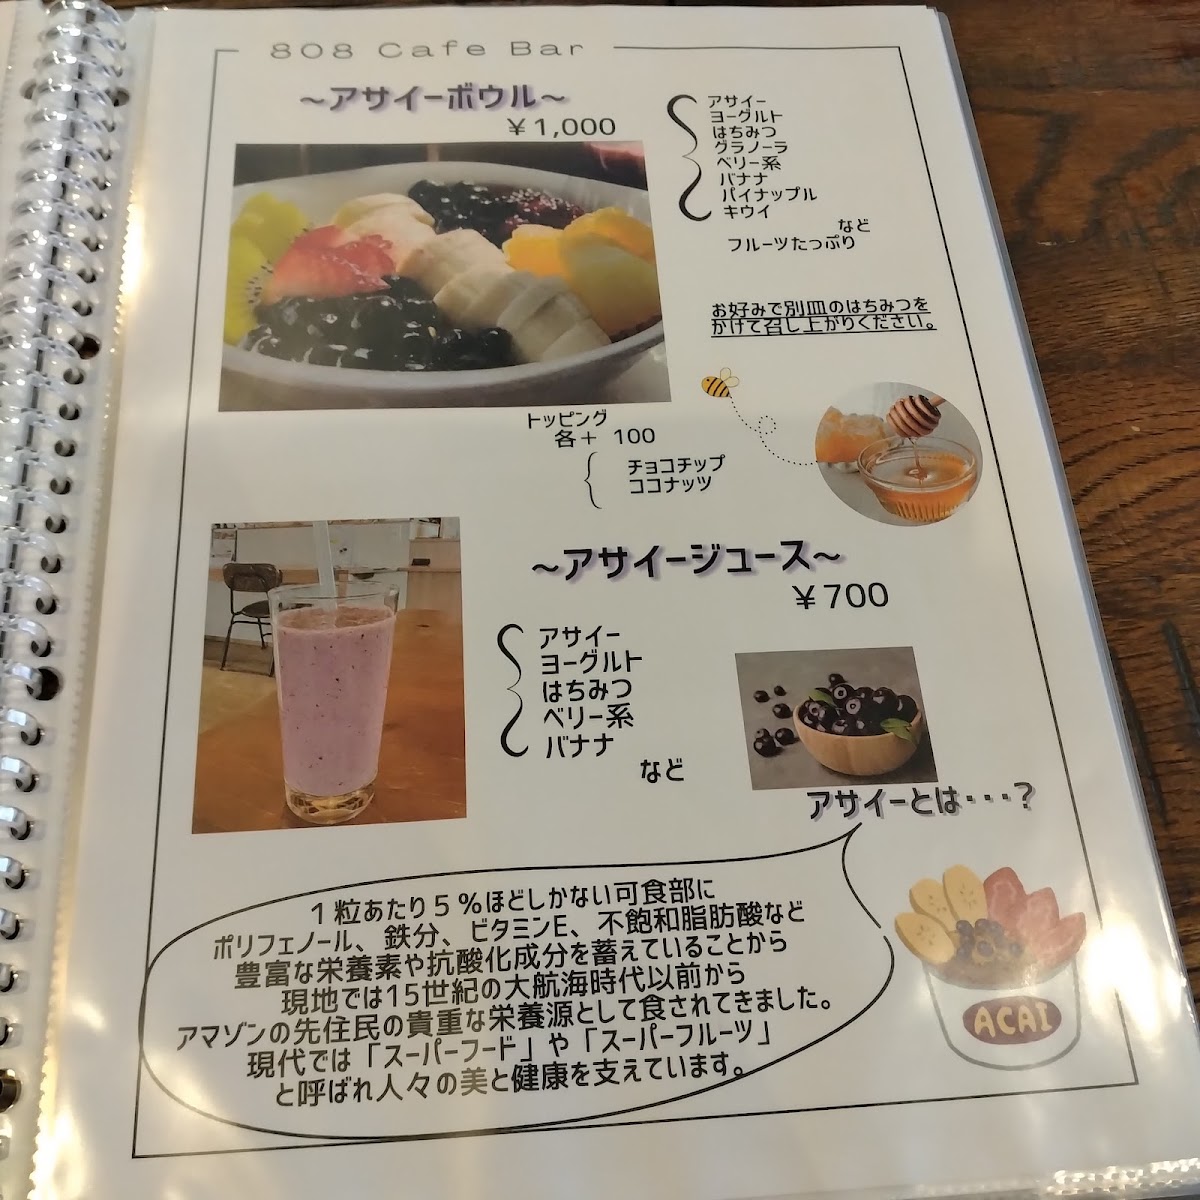 808 Cafe Bar
～アサイーボウル～
￥1,000
アサイー
ヨーグルト
はちみつ
グラノーラ
ベリー系
バナナ
パイナップル
キウイ
など
フルーツたっぷり
お好みで別皿のはちみつを
かけて召し上がりください。
トッピング
各＋ 100
チョコチップ
ココナッツ
～アサイージュース～
￥700
アサイー
ヨーグルト
はちみつ
ベリー系
バナナ
など
アサイーとは・・・？
１粒あたり５％ほどしかない可食部に
ポリフェノール、鉄分、ビタミンE、不飽和脂肪酸など
豊富な栄養素や抗酸化成分を蓄えていることから
現地では15世紀の大航海時代以前から
アマゾンの先住民の貴重な栄養源として食されてきました。
現代では「スーパーフード」や「スーパーフルーツ」
と呼ばれ人々の美と健康を支えています。
ACAI